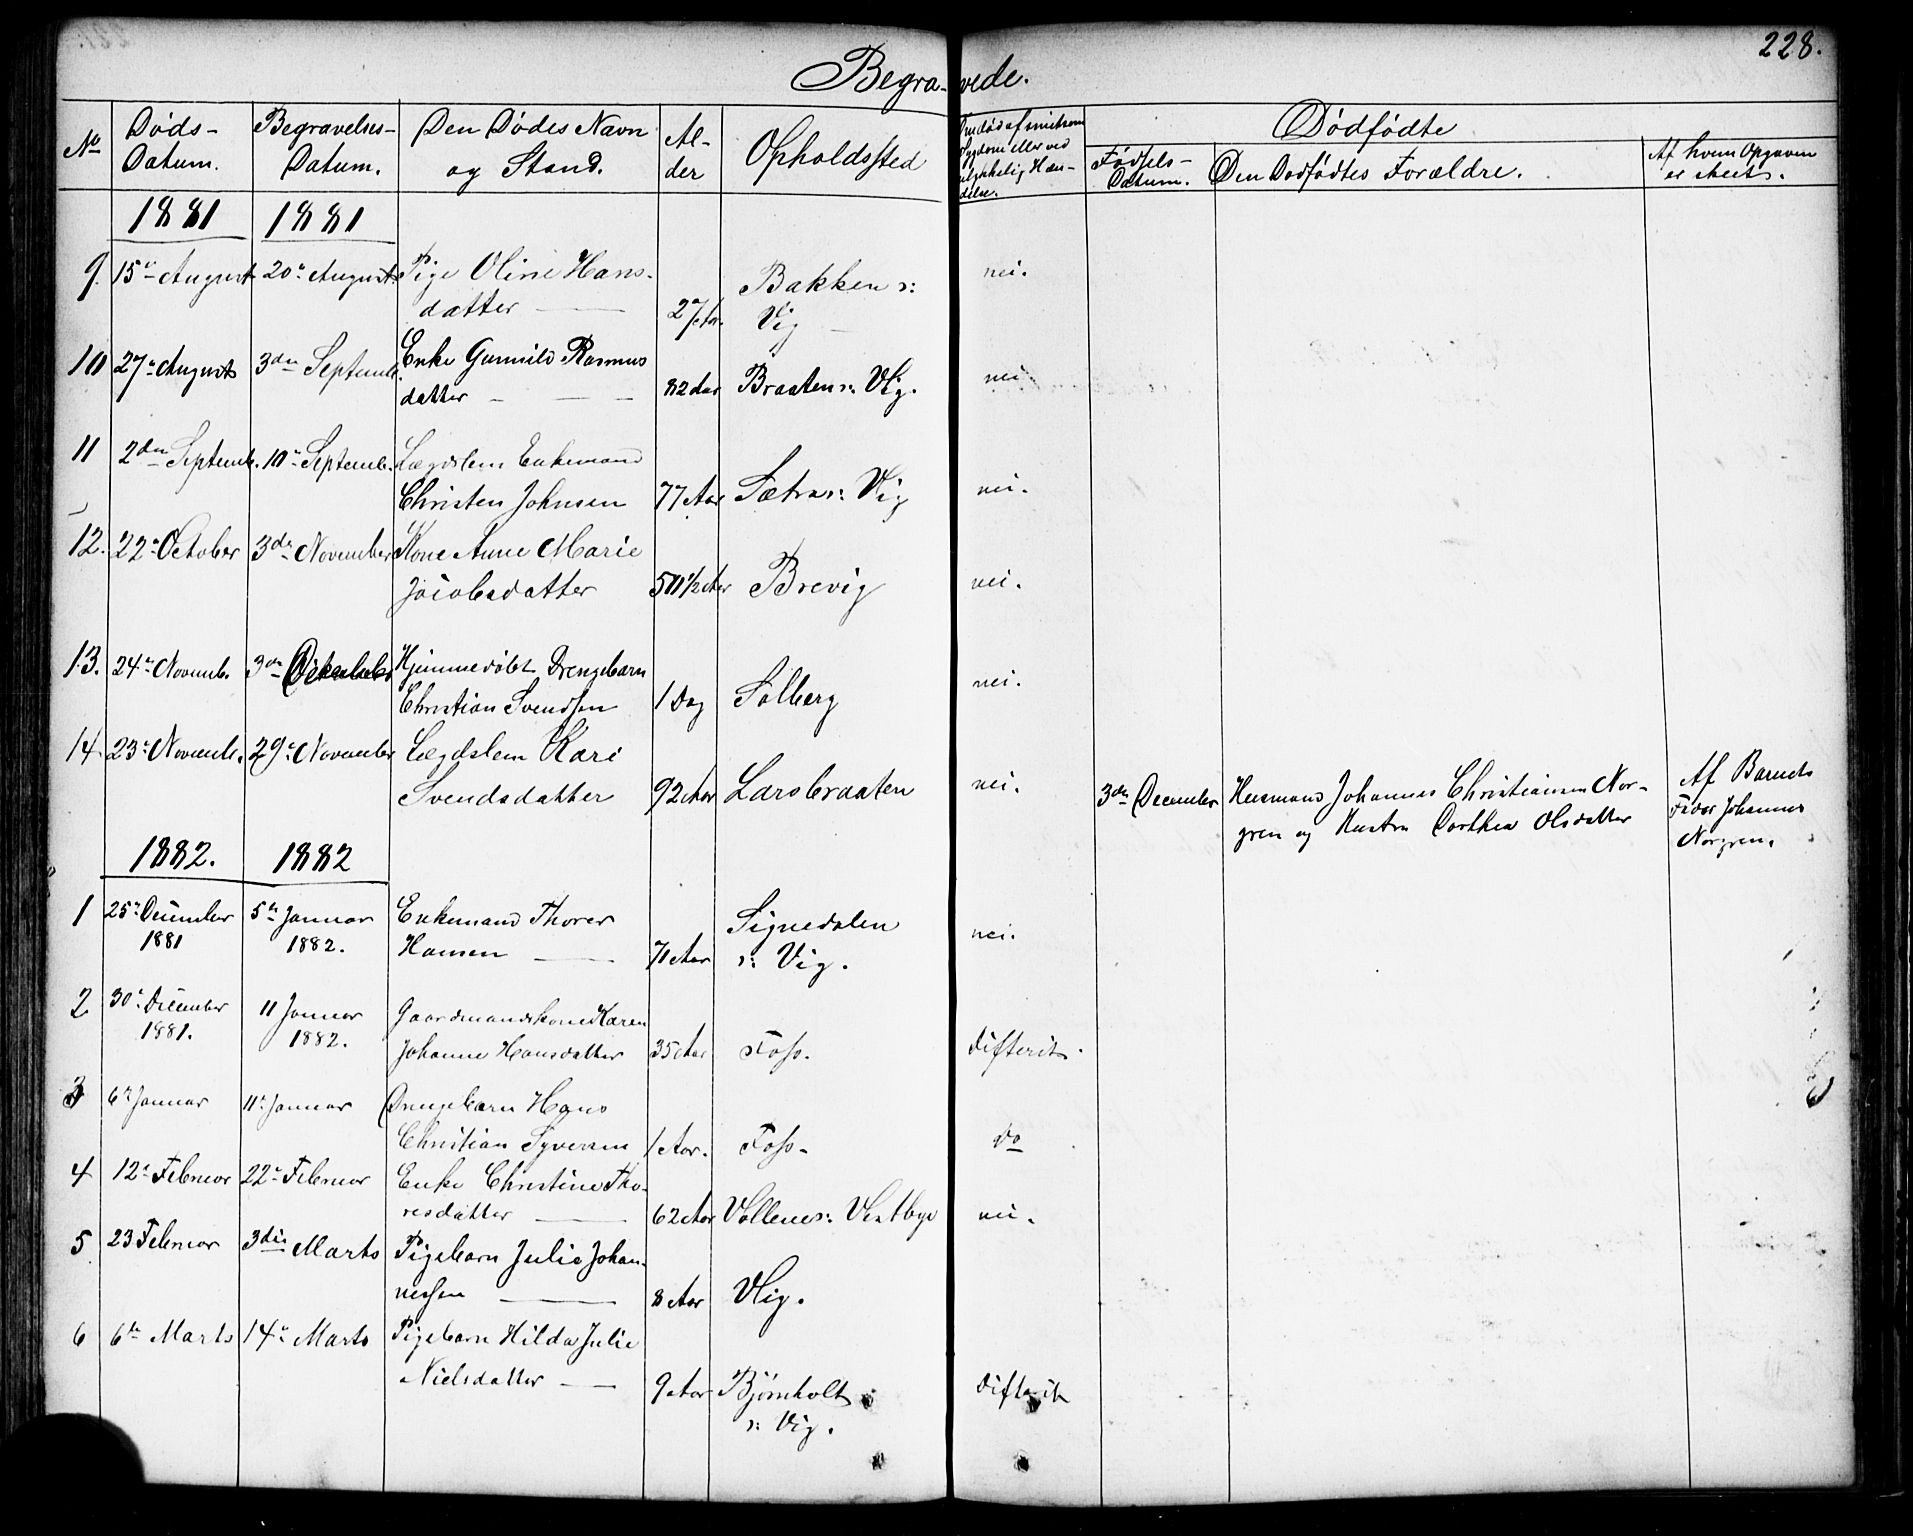 228.
Begravede.
No | Døds-Datum. | Begravelses-Datum. | Den Dødes Navn og Stand. | Al-der | Opholdssted | Om død af smitsom Sygdom eller ved ulykkelig Hæn-delse. | Dødfødte
Fødsels-Datum. | Den Dødfødtes Forældre. | Af hvem Opgaven er skeet.
1881 | 1881
9. | 15de August | 20de August | Pige Oline Hans-
datter | 27 Aar. | Bakken s: Vig | nei.
10 | 27de August | 3die Septemb. | Enke Gunnild Rasmus
datter | 82 Aar | Braaten s: Vig. | nei
11 | 2den Septemb. | 10de Septemb. | Lægdslem Enkemand
Christen Johnsen | 77 Aar | Sætra s: Vig | nei.
12. | 22de October | 3die November | Kone Anne Marie
Jacobsdatter | 50 1/2 Aar | Brevig | nei.
13. | 24de Novemb. | 3die December | Hjemmedøbt Drengebarn
Christian Svendsen | 1 Dag | Solberg | nei.
14. | 23de Novemb. | 29de November | Lægdslem Kari
Svendsdatter | 92 Aar | Larsbraaten | nei.
3die December | Husmand Johannes Christiansen Nor-
gren og Hustru Dorthea Olsdatter | Af Barnets
Fader Johannes
Norgren.
1882. | 1882
1 | 25de December
1881 | 5te Januar
1882. | Enkemand Thorer
Hansen | 71 Aar | Signedalen
s: Vig. | nei.
2 | 30te December
1881. | 11 Januar
1882. | Gaardmandskone Karen
Johanne Hansdatter | 35 Aar | Foss. | difterit.
3 | 6te Januar | 11te Januar | Drengebarn Hans
Christian Syversen | 1 Aar. | Foss. | do
4 | 12te Februar | 22de Februar | Enke Christine Tho-
resdatter | 62 Aar | Vollene s: Vestbye | nei.
5 | 23 Februar | 3die Marts | Pigebarn Julie Johan-
nessen | 8 Aar | Vig.
6 | 6te Marts | 14de Marts | Pigebarn Hilda Julie
Nielsdatter | 9 Aar | Bjørnholt
s: Vig. | difterit